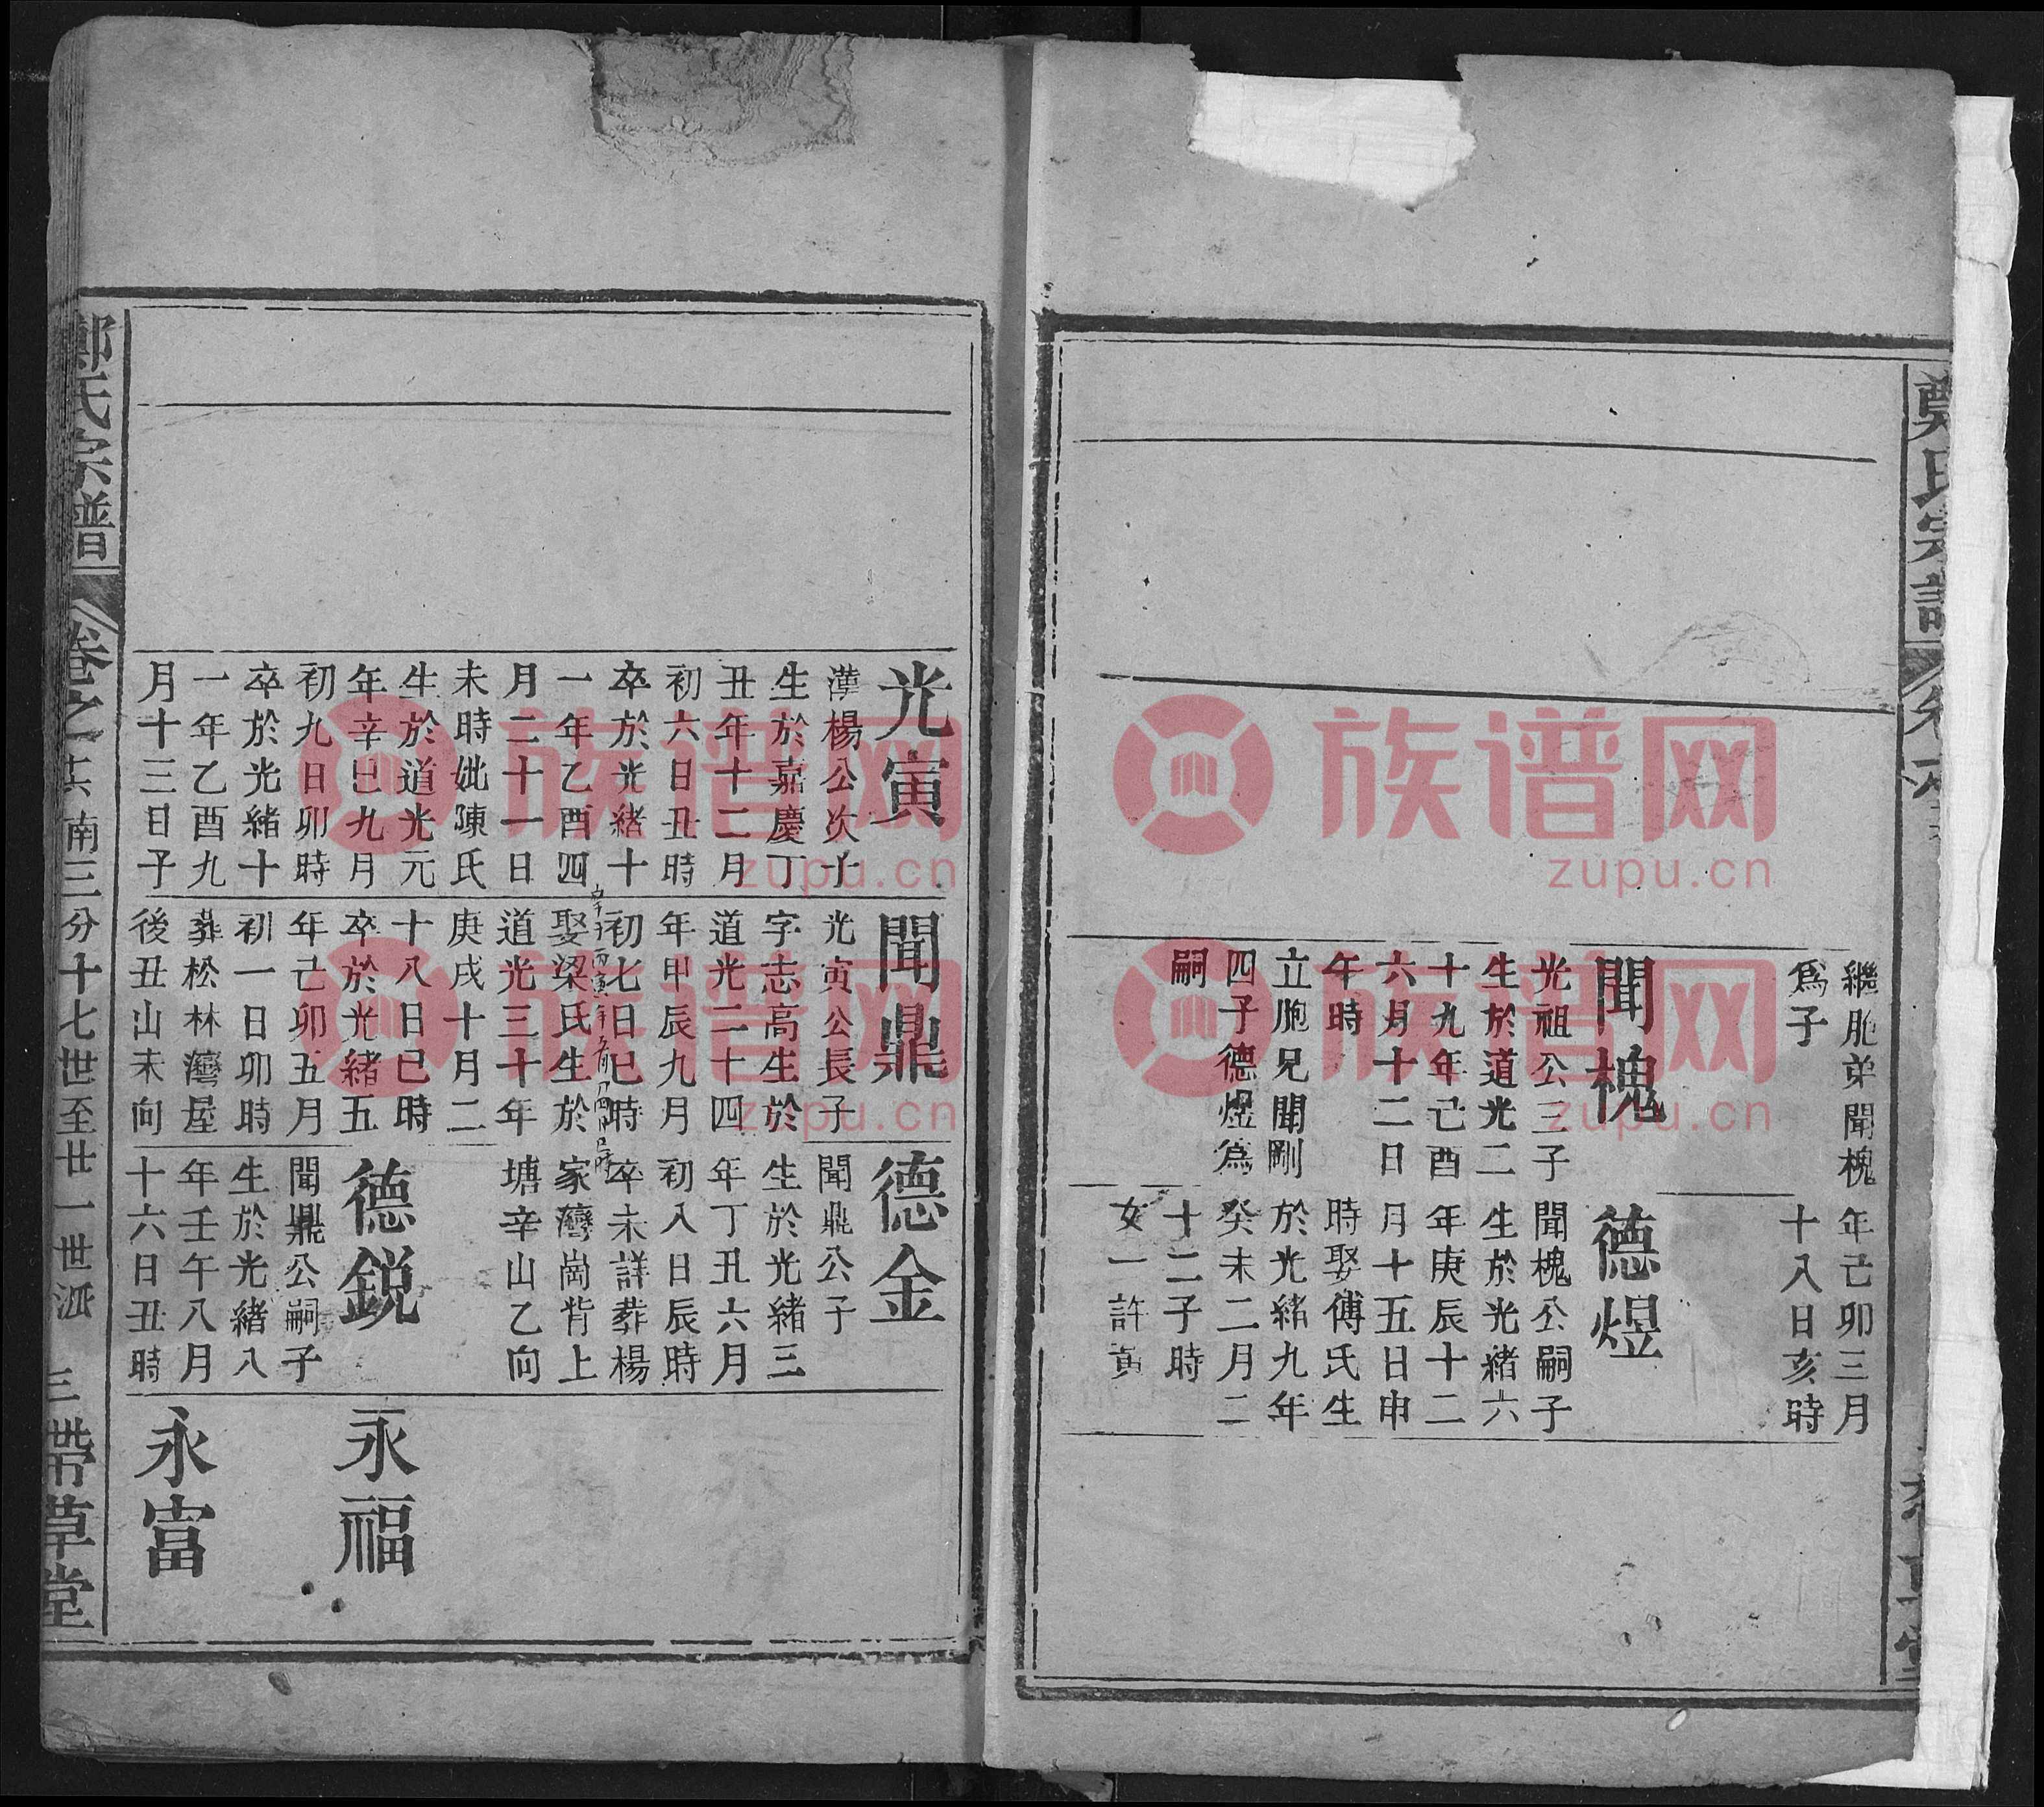 繼胞弟聞槐
爲子
聞槐
光祖公三子
生於道光二
十九年己酉
六月十二日
午時
立胞兄聞剛
四子德煜爲
嗣
年己卯三月
十八日亥時
德煜
聞槐公嗣子
生於光緒六
年庚辰十二
月十五日申
時娶傅氏生
於光緒九年
癸未二月二
十二子時
女一許黃
光寅
漢楊公次子
生於嘉慶丁
丑年十二月
初六日丑時
卒於光緒十
一年乙酉四
月二十一日
未時妣陳氏
生於道光元
年辛巳九月
初九日卯時
卒於光緒十
一年乙酉九
月十三日子
聞鼎
光寅公長子
字志高生於
道光二十四
年甲辰九月
初七日巳時
娶梁氏生於
道光三十年
庚戌十月二
十八日巳時
卒於光緒五
年己卯五月
初一日卯時
葬松林灣屋
後丑山未向
德金
聞鼎公子
生於光緒三
年丁丑六月
初入日辰時
卒未詳葬楊
家灣崗背上
塘辛山乙向
德鋭
聞鼎公嗣子
生於光緒八
年壬午八月
十六日丑時
永福
永富
鄭氏宗譜
卷之
南三分十七世至廿一世派
三
帶草堂
族谱网
zupu.cn
族谱网
zupu.cn
族谱网
zupu.cn
族谱网
zupu.cn